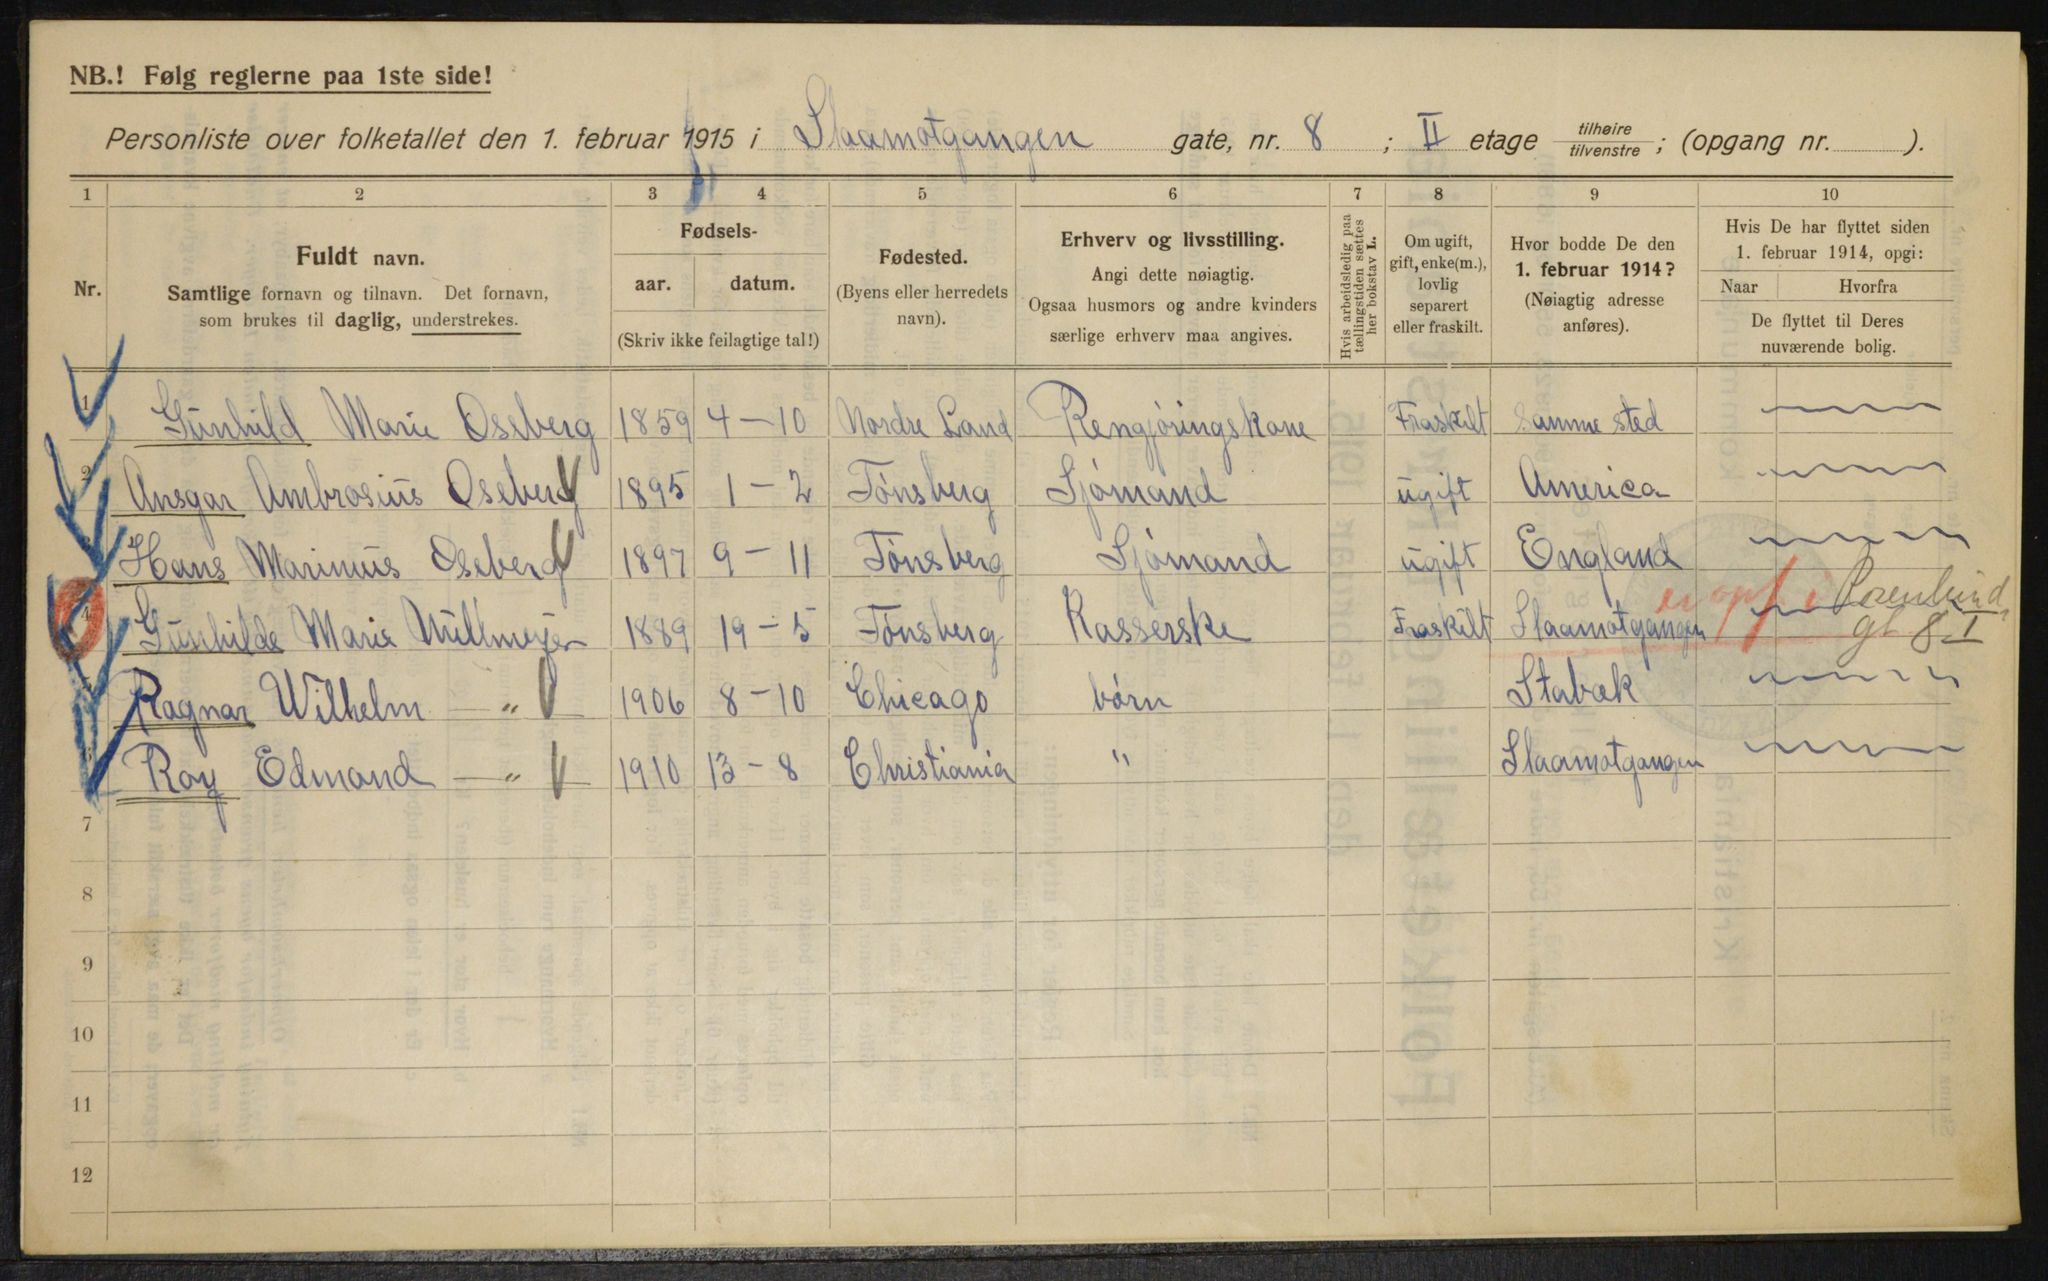 NB.! Følg reglerne paa 1ste side!
Personliste over folketallet den 1. februar 1915 i Slaamotgangen gate, nr. 8 ; II etage tilhøire tilvenstre ; (opgang nr. ).
1 2 3 4 5 6 7 8 9 10
Nr.
Fuldt navn.
Samtlige fornavn og tilnavn. Det fornavn,
som brukes til daglig, understrekes.
Fødsels-
aar. datum.
(Skriv ikke feilagtige tal!)
Fødested.
(Byens eller herredets
navn).
Erhverv og livsstilling.
Angi dette nøiagtig.
Ogsaa husmors og andre kvinders
særlige erhverv maa angives.
Hvis arbeidsledig paa
tællingstiden sættes
her bokstav L.
Om ugift,
gift, enke(m.),
lovlig
separert
eller fraskilt.
Hvor bodde De den
1. februar 1914?
(Nøiagtig adresse
anføres).
Hvis De har flyttet siden
1. februar 1914, opgi:
Naar Hvorfra
De flyttet til Deres
nuværende bolig.
1 Gunhild Marie Oseberg 1859 4-10 Nordre Land Rengjøringskone Fraskilt Samme sted
2 Ansgar Ambrosius Oseberg 1895 1-2 Tønsberg Sjømand ugift America
3 Hans Marinius Oseberg 1897 9-11 Tønsberg Sjømand ugift England
4 Gunhilde Marie Müllmeyer 1889 19-5 Tønsberg Kasserske Fraskilt Slaamotgangen er opf i Rosenlund gt 8 I
Ragnar Wilhelm —„— 1906 8-10 Chicago børn Stabæk
6 Roy Edmond —„— 1910 13-8 Christiania " Slaamotgangen
7
8
9
10
11
12